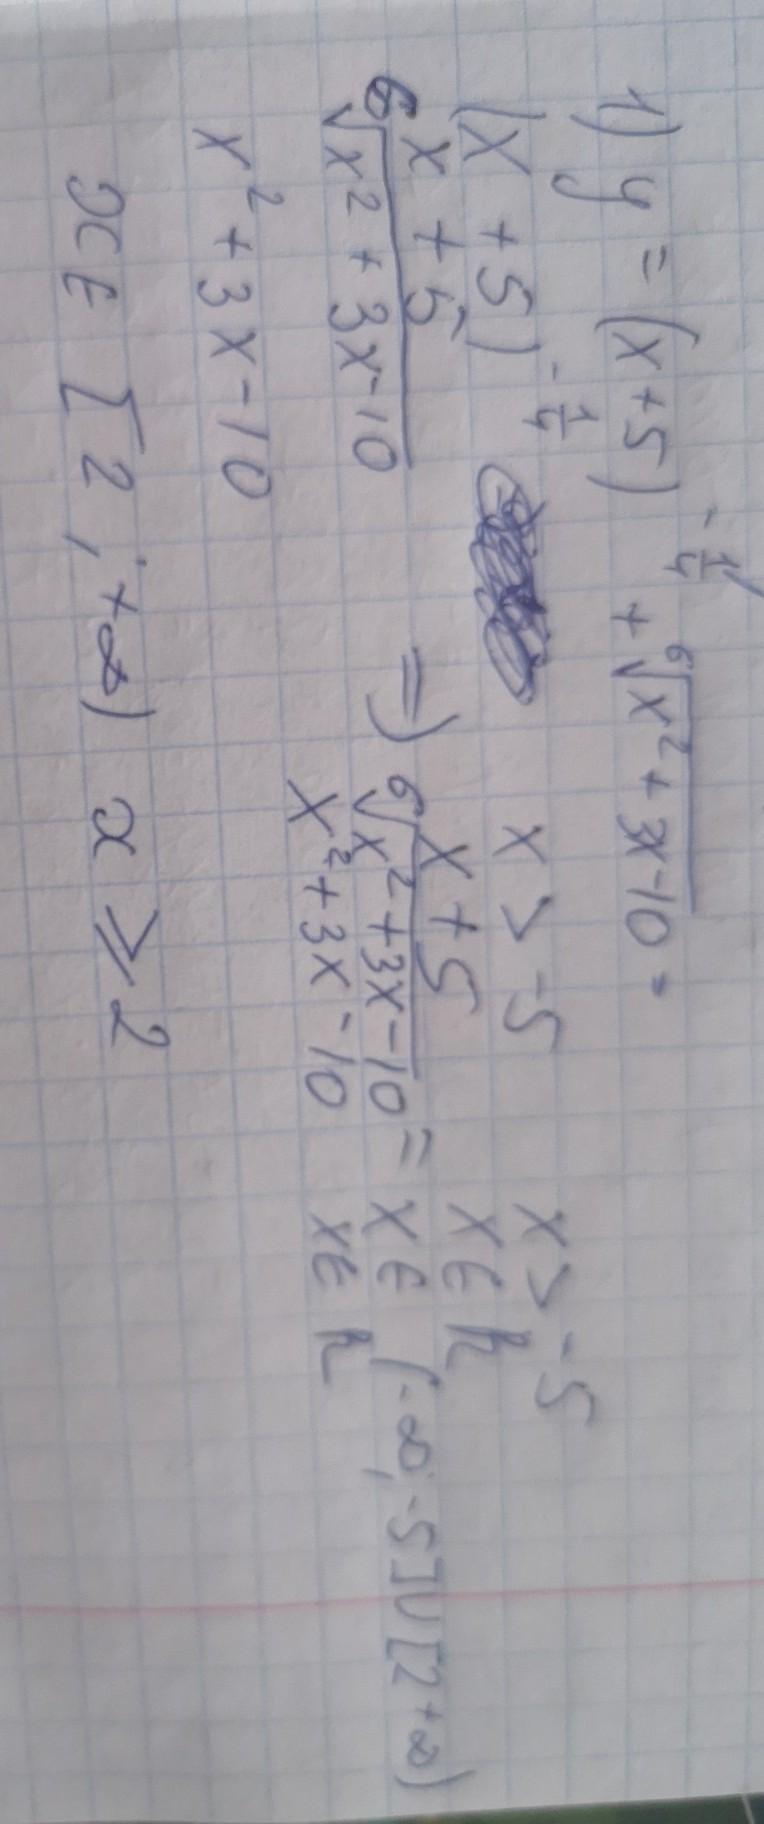 1) y = (x+5)^{-1/4} + ⁶√(x²+3x-10) =
(x+5)^{-1/4} x > -5 x > -5
x + 5 x + 5 x ∈ R
⁶√(x²+3x-10) => ⁶√(x²+3x-10) = x ∈ (-∞; -5]U[2+∞)
x²+3x-10 x²+3x-10 x ∈ R
x ∈ [2; +∞) x ⩾ 2